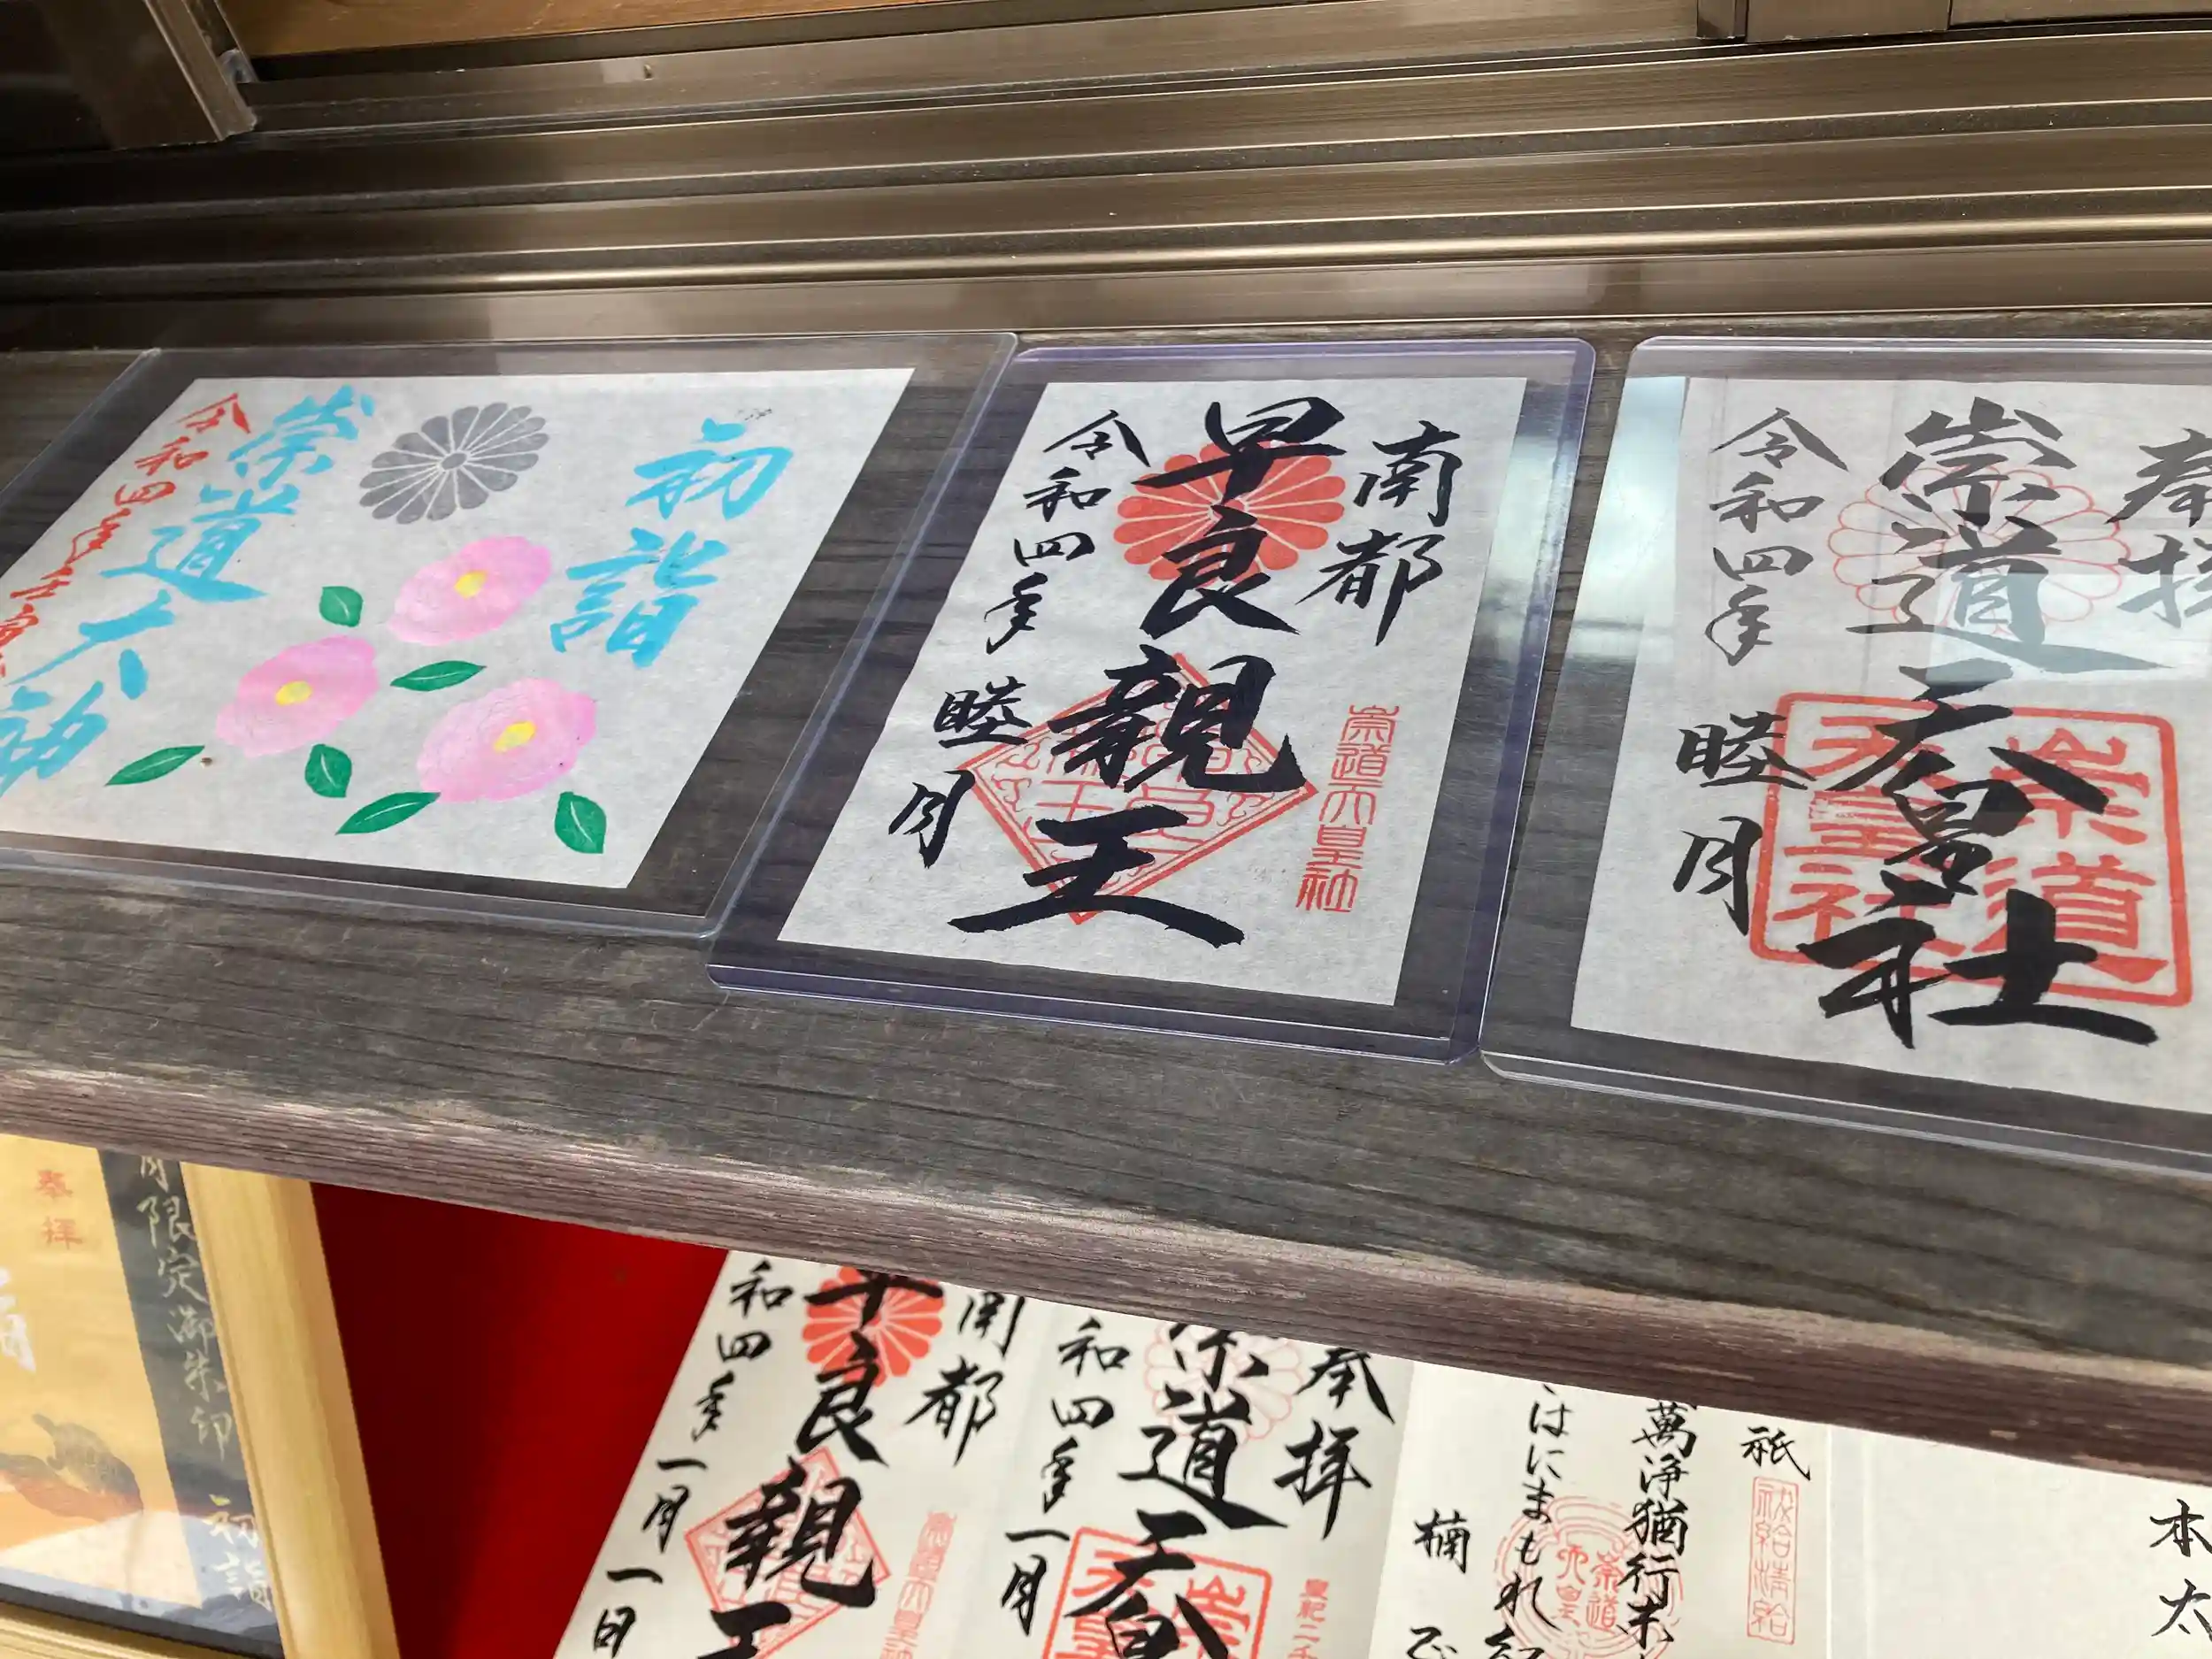 初詣
崇道大神
令和四年壬寅
南都
早良親王
令和四年
睦月
崇道天皇社
奉拝
崇道天皇社
令和四年
睦月
崇道天皇社
奉拝
月限定御朱印 初詣
南都
早良親王
和四年一月一日
奉拝
崇道天皇
和四年一月
皇紀二千
祇
祓給清給
萬浄猶行末
はにまもれ
崇道天皇
楠
本太